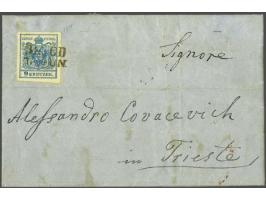 Signore
9 KREUZER
Alessandro Covacevich
in Trieste